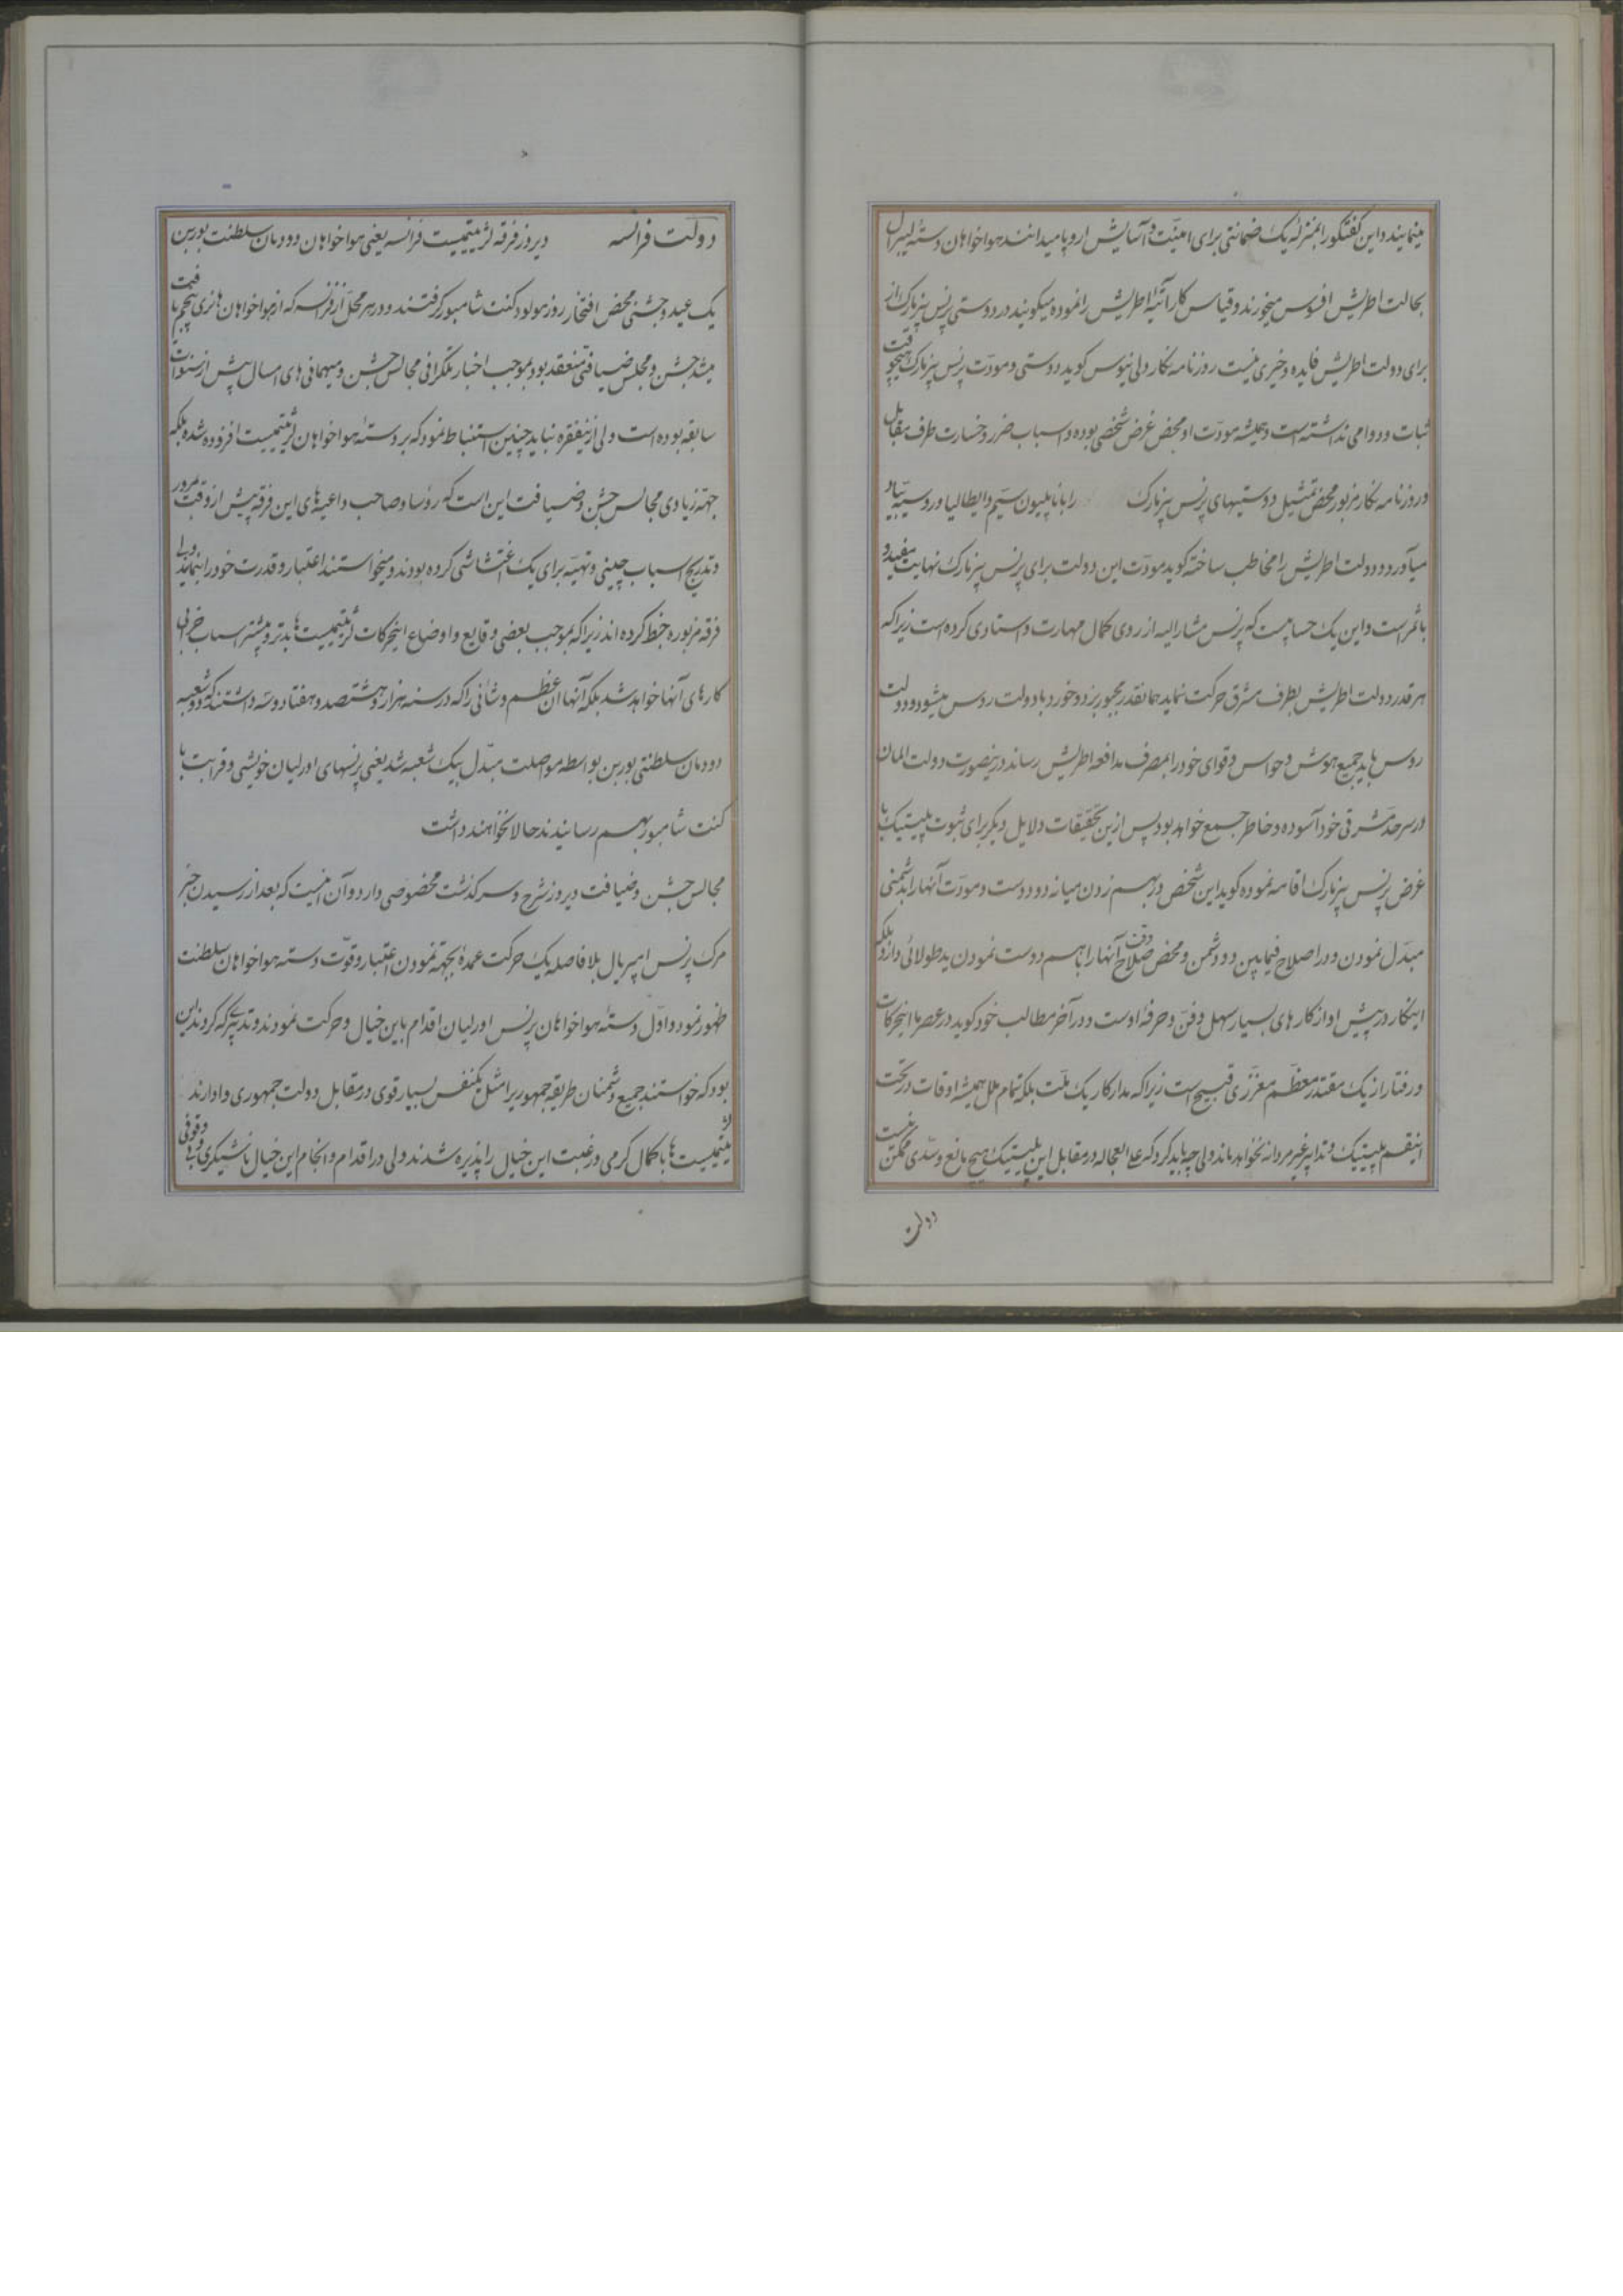 مینمایند و این گفتگو را بمنزلهٔ یک ضمانتی برای امنیّت و آسایش اروپا میدانند هواخواهان دستهٔ لیبرال
بحالت اطریش افسوس میخورند و قیاس کار آتیهٔ اطریش را نموده میگویند در دوستی پرنس بیزمارک از
برای دولت اطریش فایده و خیری نیست روزنامه نگار دلی نیوس گوید دوستی و مودّت پرنس بیزمارک هیچوقت
ثبات و دوامی نداشته است و همیشه مودّت او محض غرض شخصی بوده و اسباب ضرر و خسارت طرف مقابل
و روزنامه نگار مزبور محض تمثیل دوستیهای پرنس بیزمارک را با ناپلیون سیّم و ایطالیا و روسیه بیاد
میآورد و دولت اطریش را مخاطب ساخته گوید مودّت این دولت برای پرنس بیزمارک نهایت مفید و
با ثمر است و این یک حسابیست که پرنس مشار الیه از روی کمال مهارت و استادی کرده است زیرا که
هر قدر دولت اطریش بطرف مشرق حرکت نماید همانقدر مجبور بزد و خورد با دولت روس میشود و دولت
روس باید جمیع هوش و حواس و قوای خود را بمصرف مدافعه اطریش رساند در اینصورت دولت المان
در سرحدّ مشرقی خود آسوده و خاطر جمع خواهد بود پس ازین تحقیقات دلایل دیگر برای ثبوت پلیتیک با
غرض پرنس بیزمارک اقامه نموده گوید این شخص در بهم زدن میانه دو دوست و مودّت آنها را بدشمنی
مبدّل نمودن و در اصلاح فیمابین دو دشمن و محض صلاح وقت آنها را با هم دوست نمودن ید طولائی دارد بلکه
اینکار در پیش او از کارهای بسیار سهل و فنّ و حرفه اوست و در آخر مطالب خود گوید در عصر ما اینحرکات
و رفتار از یک مقتدر معظّم معزّزی قبیح است زیرا که مدار کار یک ملّت بلکه تمام ملل همیشه اوقات در تحت
اینقسم پلیتیک و تدابیر غیر مردانه نخواهد ماند ولی چه باید کرد که علی العجاله در مقابل این پلیتیک هیچ مانع و سدّی ممکن نیست
دولت
دولت فرانسه دیروز فرقه لژیتیمیست فرانسه یعنی هواخواهان دودمان سلطنت بوربن
یک عید و جشنی محض افتخار روز مولود کنت شامبور گرفتند و در هر محلّ از فرانسه که از هواخواهان هانری پنجم یافت
میشد جشن و مجلس ضیافتی منعقد بود بموجب اخبار تلگرافی مجالس جشن و میهمانی های امسال بیش از سنوات
سابقه بوده است ولی ازینفقره نباید چنین استنباط نمود که بر دستهٔ هواخواهان لژیتیمیست افزوده شده بلکه
جهته زیادی مجالس جشن و ضیافت این است که رؤسا و صاحب داعیه های این فرقه پیش از وقت بمرور
و تدریج اسباب چینی و تهیّه برای یک اغتشاشی کرده بودند و میخواستند اعتبار و قدرت خود را بنمایند ولی
فرقه مزبوره خبط کرده اند زیرا که بموجب بعضی وقایع و اوضاع اینحرکات لژیتیمیست ها بدتر و بیشتر اسباب خرابی
کارهای آنها خواهد شد بلکه آنها آن عظم و شأنی را که در سنه هزار و هشتصد و هفتاد و سه داشتند که دو شعبه
دودمان سلطنتی بوربن بواسطه مواصلت مبدّل بیک شعبه شد یعنی پرنسهای اورلیان خویشی و قرابت با
کنت شامبور بهم رسانیدند حالا نخواهند داشت
مجالس جشن و ضیافت دیروز شرح و سرگذشت مخصوصی دارد و آن اینست که بعد از رسیدن خبر
مرگ پرنس امپریال بلافاصله یک حرکت عمدهٔ بجهته نمودن اعتبار و قوّت دسته هواخواهان سلطنت
ظهور نمود و اوّل دستهٔ هواخواهان پرنس اورلیان اقدام باین خیال و حرکت نمودند و تدبیری که کردند این
بود که خواستند جمیع دشمنان طریقه جمهوریرا مثل یکنفس بسیار قوی در مقابل دولت جمهوری وادارند
لژیتیمیست ها با کمال گرمی و رغبت این خیال را پذیره شدند ولی در اقدام و انجام این خیال ناشیگری و بیوقوفی